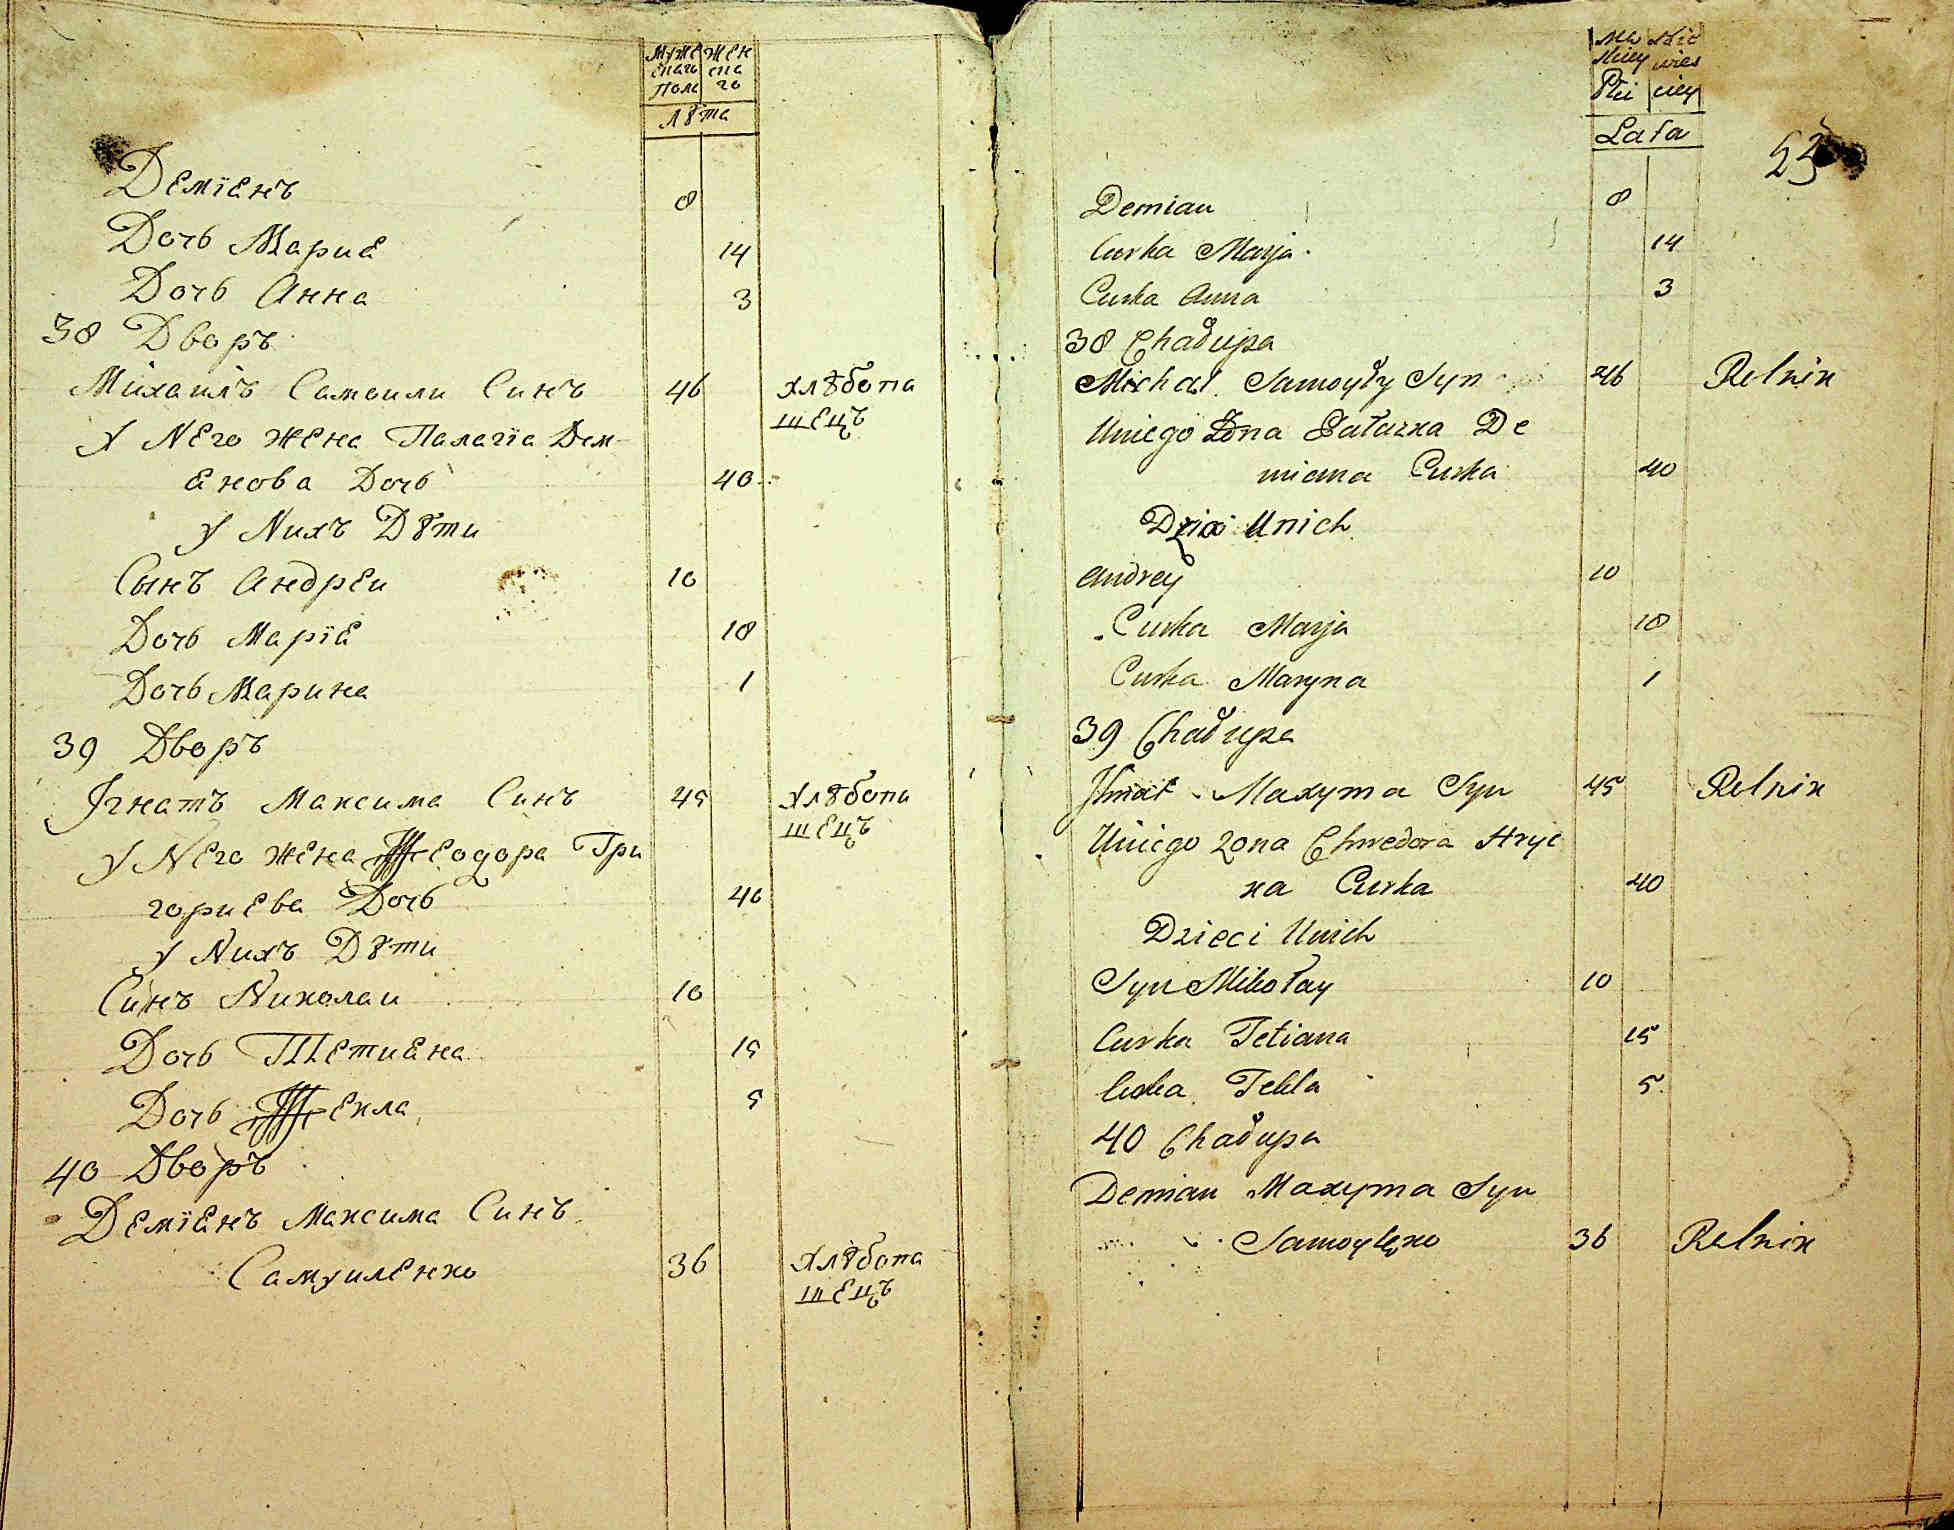 Муже Жен
скаго ска
Пола го
Лѣта
Деміенъ 8
Дочь Мариѣ 14
Дочь Анна 3
38 Дворъ
Михаилъ Самоили Синъ 46 Хлѣбопа
шецъ
У Него жена Палагіа Дем
енова Дочь 40
У Нихъ Дѣти
Сынъ Андреи 10
Дочь Маріѣ 18
Дочь Марина 1
39 Дворъ
Ігнатъ Максима Синъ 45 Хлѣбопа
шецъ
У Него жена Ѳеодора Гри
гориева Дочь 40
У Нихъ Дѣти
Синъ Николаи 10
Дочь Тетиена 15
Дочь Ѳекла 5
40 Дворъ
Деміенъ Максима Синъ
Самуиленко 36 Хлѣбопа
шецъ
Płci
Lata
52
Demian 8
Curka Marja 14
Curka Anna 3
38 Chałupa
Michał Samoyły Syn 46 Rolnik
Uniego Żona Pałazka De
miana Curka 40
Dzieci Unich
Andrey 10
Curka Marja 18
Curka Maryna 1
39 Chałupa
Jhnat Maxyma Syn 45 Rolnik
Uniego Zona Chwedora Hryc
ka Curka 40
Dzieci Unich
Syn Mikołay 10
Curka Tetiana 15
Curka Tekla 5
40 Chałupa
Demian Maxyma Syn
Samoylęko 36 Rolnik